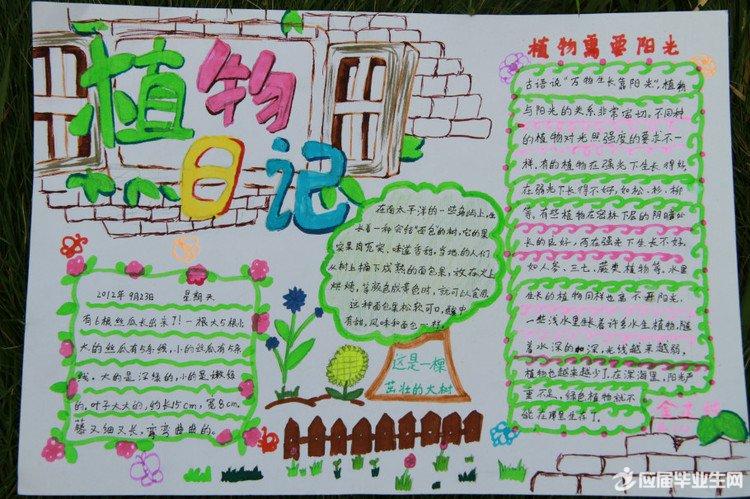 植物
日记
2012年9月23日 星期天
有6根丝瓜长出来了!一根大5根小
大的丝瓜有5条线,小的丝瓜有5条
线。大的是深绿的,小的是嫩绿
的,叶子大大的,约长15cm,宽8cm.
藤又细又长,弯弯曲曲的。
在南太平洋的一些岛屿上,生
长着一种会结“面包的树,它的果
实果肉充实,味道香甜,当地的人们
从树上摘下成熟的面包果,放在火上
烘烤,等颜色成黄色时,就可以食用
这种面包果松软可口,酸中
有甜,风味和面包一样.
这是一棵
茁壮的大树
植物需要阳光
古语说“万物生长靠阳光”,植物
与阳光的关系非常密切,不同种
的植物对光照强度的要求不一
样,有的植物在强光下生长得好
在弱光下长得不好,如松,杉,柳
等,有些植物在密林下层的阴暗处
长的良好,而在强光下生长不好.
如人参,三七,蕨类植物等,水里
生长的植物同样也离不开阳光.
一些浅水里生长着许多水生植物,随
着水深的加深,光线越来越弱,
植物也越来越少了.在深海里,阳光严
重不足,绿色植物就不
能在那里生存了.
应届毕业生网